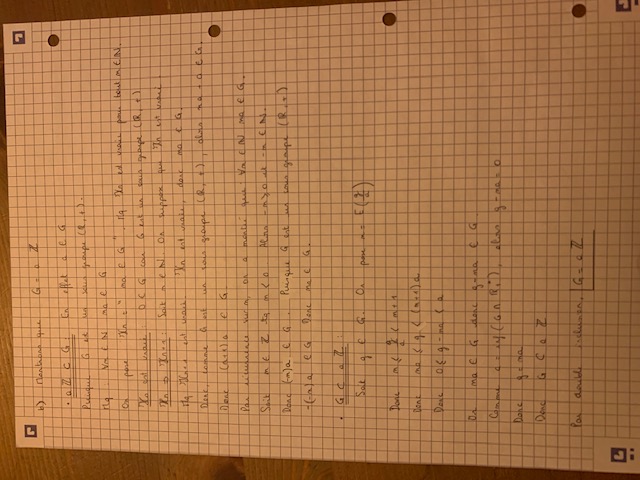 b) Montrons que G = a ℤ
• a ℤ ⊂ G : En effet a ∈ G
Puisque G est un sous groupe (ℝ, +).
Mq ∀n ∈ ℕ na ∈ G
On pose ℋn = " na ∈ G ". Mq ℋn est vraie pour tout n ∈ ℕ.
ℋ0 est vraie : 0 ∈ G car G est un sous groupe (ℝ, +)
ℋn ⇒ ℋn+1 : Soit n ∈ ℕ. On suppose que ℋn est vraie
Mq ℋn+1 est vraie. ℋn est vraie, donc na ∈ G.
Donc, comme G est un sous groupe (ℝ, +), alors na + a ∈ G.
Donc (n+1) a ∈ G
Par récurrence sur n, on a montré que : ∀n ∈ ℕ na ∈ G.
Soit n ∈ ℤ tq n < 0 Alors -n > 0 et -n ∈ ℕ.
Donc (-n) a ∈ G. Puisque G est un sous groupe (ℝ, +)
-(-n) a ∈ G Donc na ∈ G.
• G ⊂ a ℤ :
Soit g ∈ G. On pose n = E(g/a)
Donc n ≤ g/a < n+1
Donc na ≤ g < (n+1) a
Donc 0 ≤ g - na < a
Or na ∈ G donc g - na ∈ G
Comme a = inf (G ∩ ℝ+*), alors g - na = 0
Donc g = na
Donc G ⊂ a ℤ
Par double inclusion, G = a ℤ